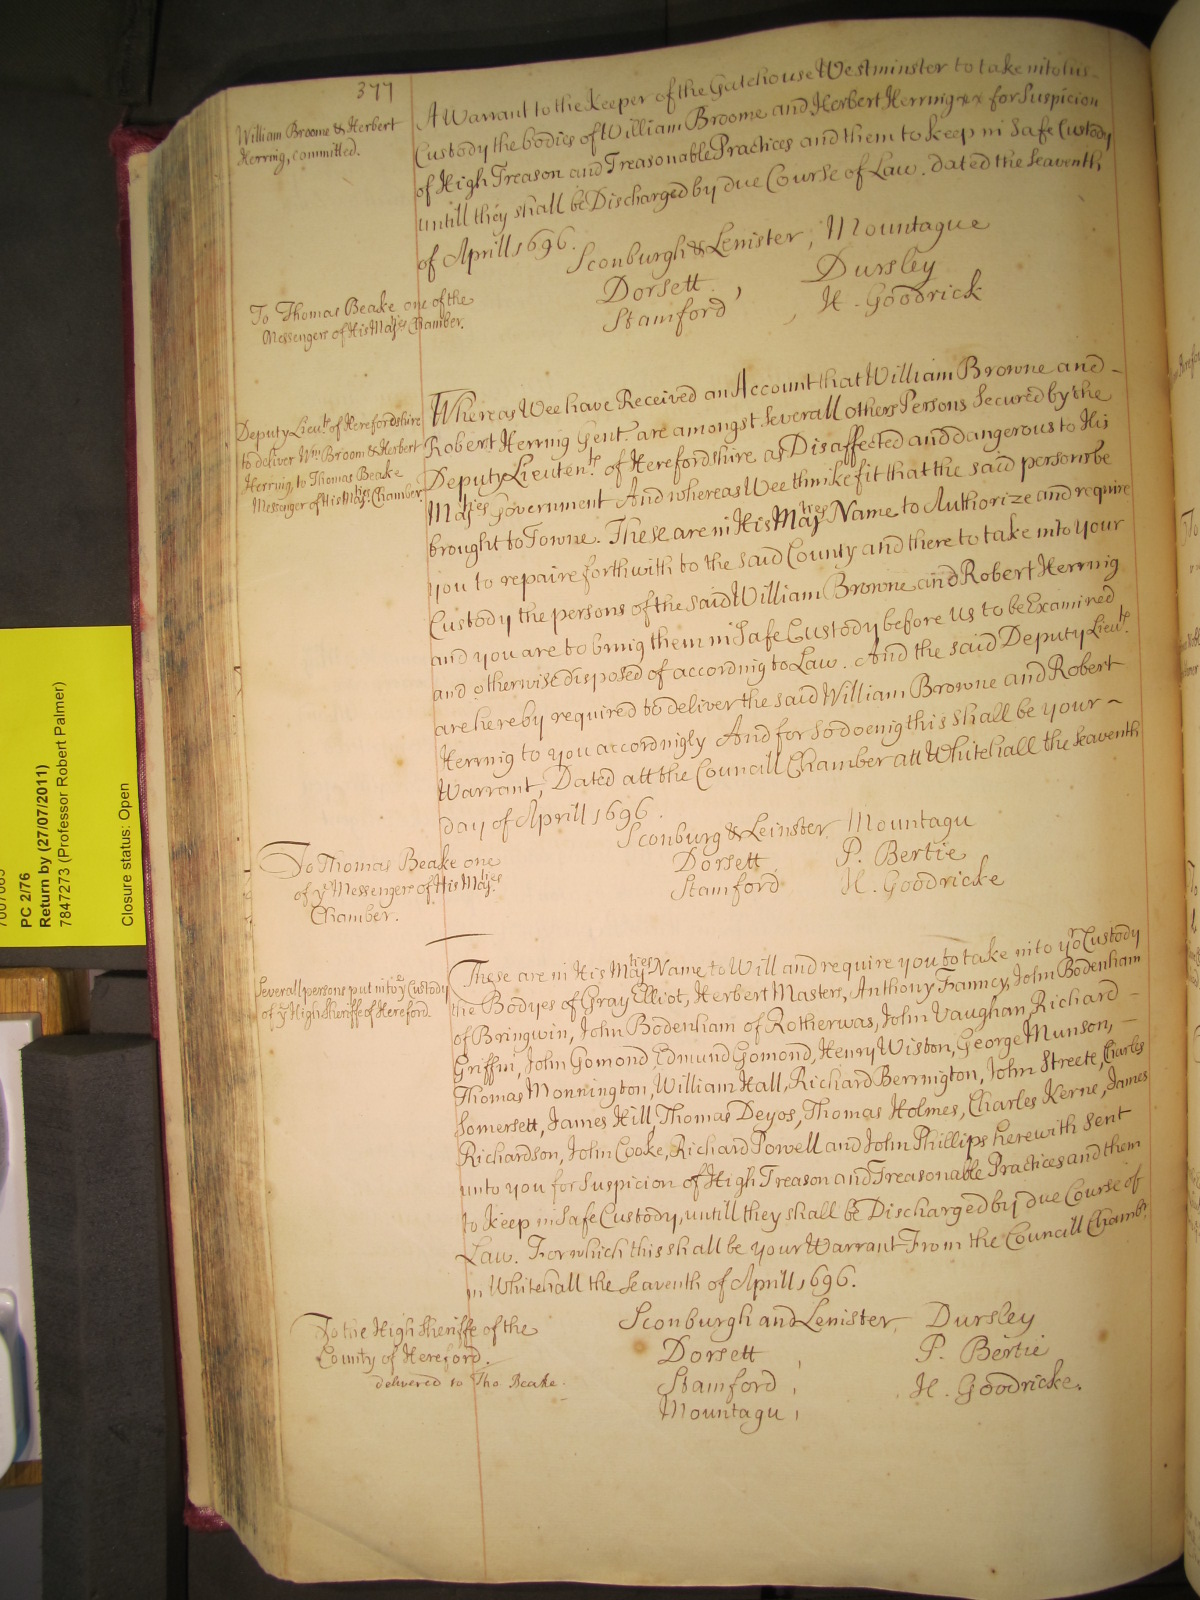 377
William Broome & Herbert
Herring, committed.
A Warrant to the Keeper of the Gatehouse Westminster to take into his
Custody the bodies of William Broome and Herbert Herring for Suspicion
of High Treason and Treasonable Practices and them to keep in Safe Custody
untill they shall be Discharged by due Course of Law. dated the Seaventh
of Aprill 1696.
Sconburgh & Lenister, Mountague
Dorsett, Dursley
Stamford, H. Goodrick
To Thomas Beake one of the
Messengers of His Majties Chamber.
Deputy Lieuts. of Herefordshire
to deliver Wm. Broom & Herbert
Herring, to Thomas Beake
Messenger of His Majties Chamber.
Whereas Wee have Received an Account that William Browne and -
Robert Herring Gent. are amongst Severall others Persons Secured by the
Deputy Lieutents. of Herefordshire as Disaffected and dangerous to His
Majties Government And whereas Wee thinke fit that the said persons be
brought to Towne. These are in His Majties Name to Authorize and require
you to repaire forthwith to the said County and there to take into your
Custody the persons of the said William Browne and Robert Herring
and you are to bring them in Safe Custody before us to be Examined
and otherwise disposed of according to Law. And the said Deputy Lieuts.
are hereby required to deliver the said William Browne and Robert
Herring to you accordingly And for so doeing this shall be your ~
Warrant, Dated att the Councill Chamber att Whitehall the Seaventh
day of Aprill 1696.
Sconburg & Leinster Mountagu
Dorsett P. Bertie
Stamford H. Goodricke
To Thomas Beake one
of ye Messengers of His Majties
Chamber.
Severall persons put into ye Custody
of ye High Sheriffe of Hereford.
These are in His Majties Name to Will and require you to take into yor Custody
the Bodyes of Gray Elliot, Herbert Masters, Anthony Franncy, John Bodenham
of Bringwin, John Bodenham of Rotherwas, John Vaughan, Richard -
Griffin, John Gomond, Edmund Gomond, Henry Wiston, George Munson, -
Thomas Monnington, William Hall, Richard Berrington, John Streete, Charles
Somersett, James Hill, Thomas Deyos, Thomas Holmes, Charles Kerne, James
Richardson, John Cooke, Richard Powell and John Phillips herewith Sent
unto you for Suspicion of High Treason and Treasonable Practices and them
to keep in Safe Custody, untill they shall be Discharged by due Course of
Law. For which this shall be your Warrant From the Councill Chambr.
in Whitehall the Seaventh of Aprill 1696.
Sconburgh and Lenister, Dursley
Dorsett, P. Bertie
Stamford, H. Goodricke.
Mountagu,
To the High Sheriffe of the
County of Hereford.
delivered to Tho. Beake.
PC 2/76
Return by (27/07/2011)
7847273 (Professor Robert Palmer)
Closure status: Open